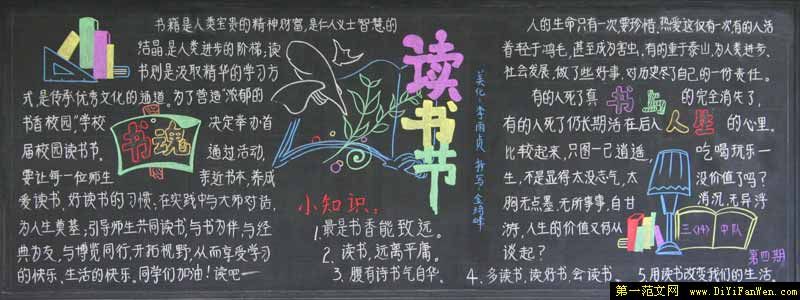 书籍是人类宝贵的精神财富,是仁人义士智慧的
结晶,是人类进步的阶梯;读
书则是汲取精华的学习方
式,是传承优秀文化的通道。为了营造"浓郁的
书香校园",学校
决定举办首
届校园读书节。
通过活动,
要让每一位师生
亲近书本,养成
爱读书、好读书的习惯,在实践中与大师对话,
为人生奠基,引导师生共同读书,与书为伴,与经
典为友,与博览同行,开拓视野,从而享受学习
的快乐、生活的快乐。同学们加油!读吧—
书魂
读书节
美化:李雨贞
书写:金琦峰
小知识:
1.最是书香能致远。
2.读书,远离平庸。
3.腹有诗书气自华。
4.多读书,读好书,会读书。
5.用读书改变我们的生活。
书与人生
人的生命只有一次要珍惜,热爱这仅有一次,有的人活
着轻于鸿毛,甚至成为害虫,有的重于泰山,为人类进步、
社会发展,做了些好事,对历史尽了自己的一份责任。
有的人死了真的完全消失了,
有的人死了仍长期活在后人的心里。
比较起来,只图一己逍遥,吃喝玩乐一
生,不是显得太没志气,太没价值了吗?
胸无点墨,无所事事,自甘消沉,无异浮
游,人生的价值又何从
谈起?
三〈14〉中队
第四期
第一范文网 www.DiYiFanWen.com